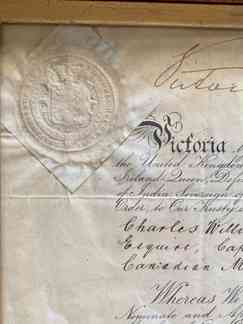 Victoria
Victoria
the United Kingdom
Ireland Queen, Defe
of India, Sovereign
Order, to Our Trusty
Charles Willi
Esquire Cap
Canadian M
Whereas We
Nominate and Ap